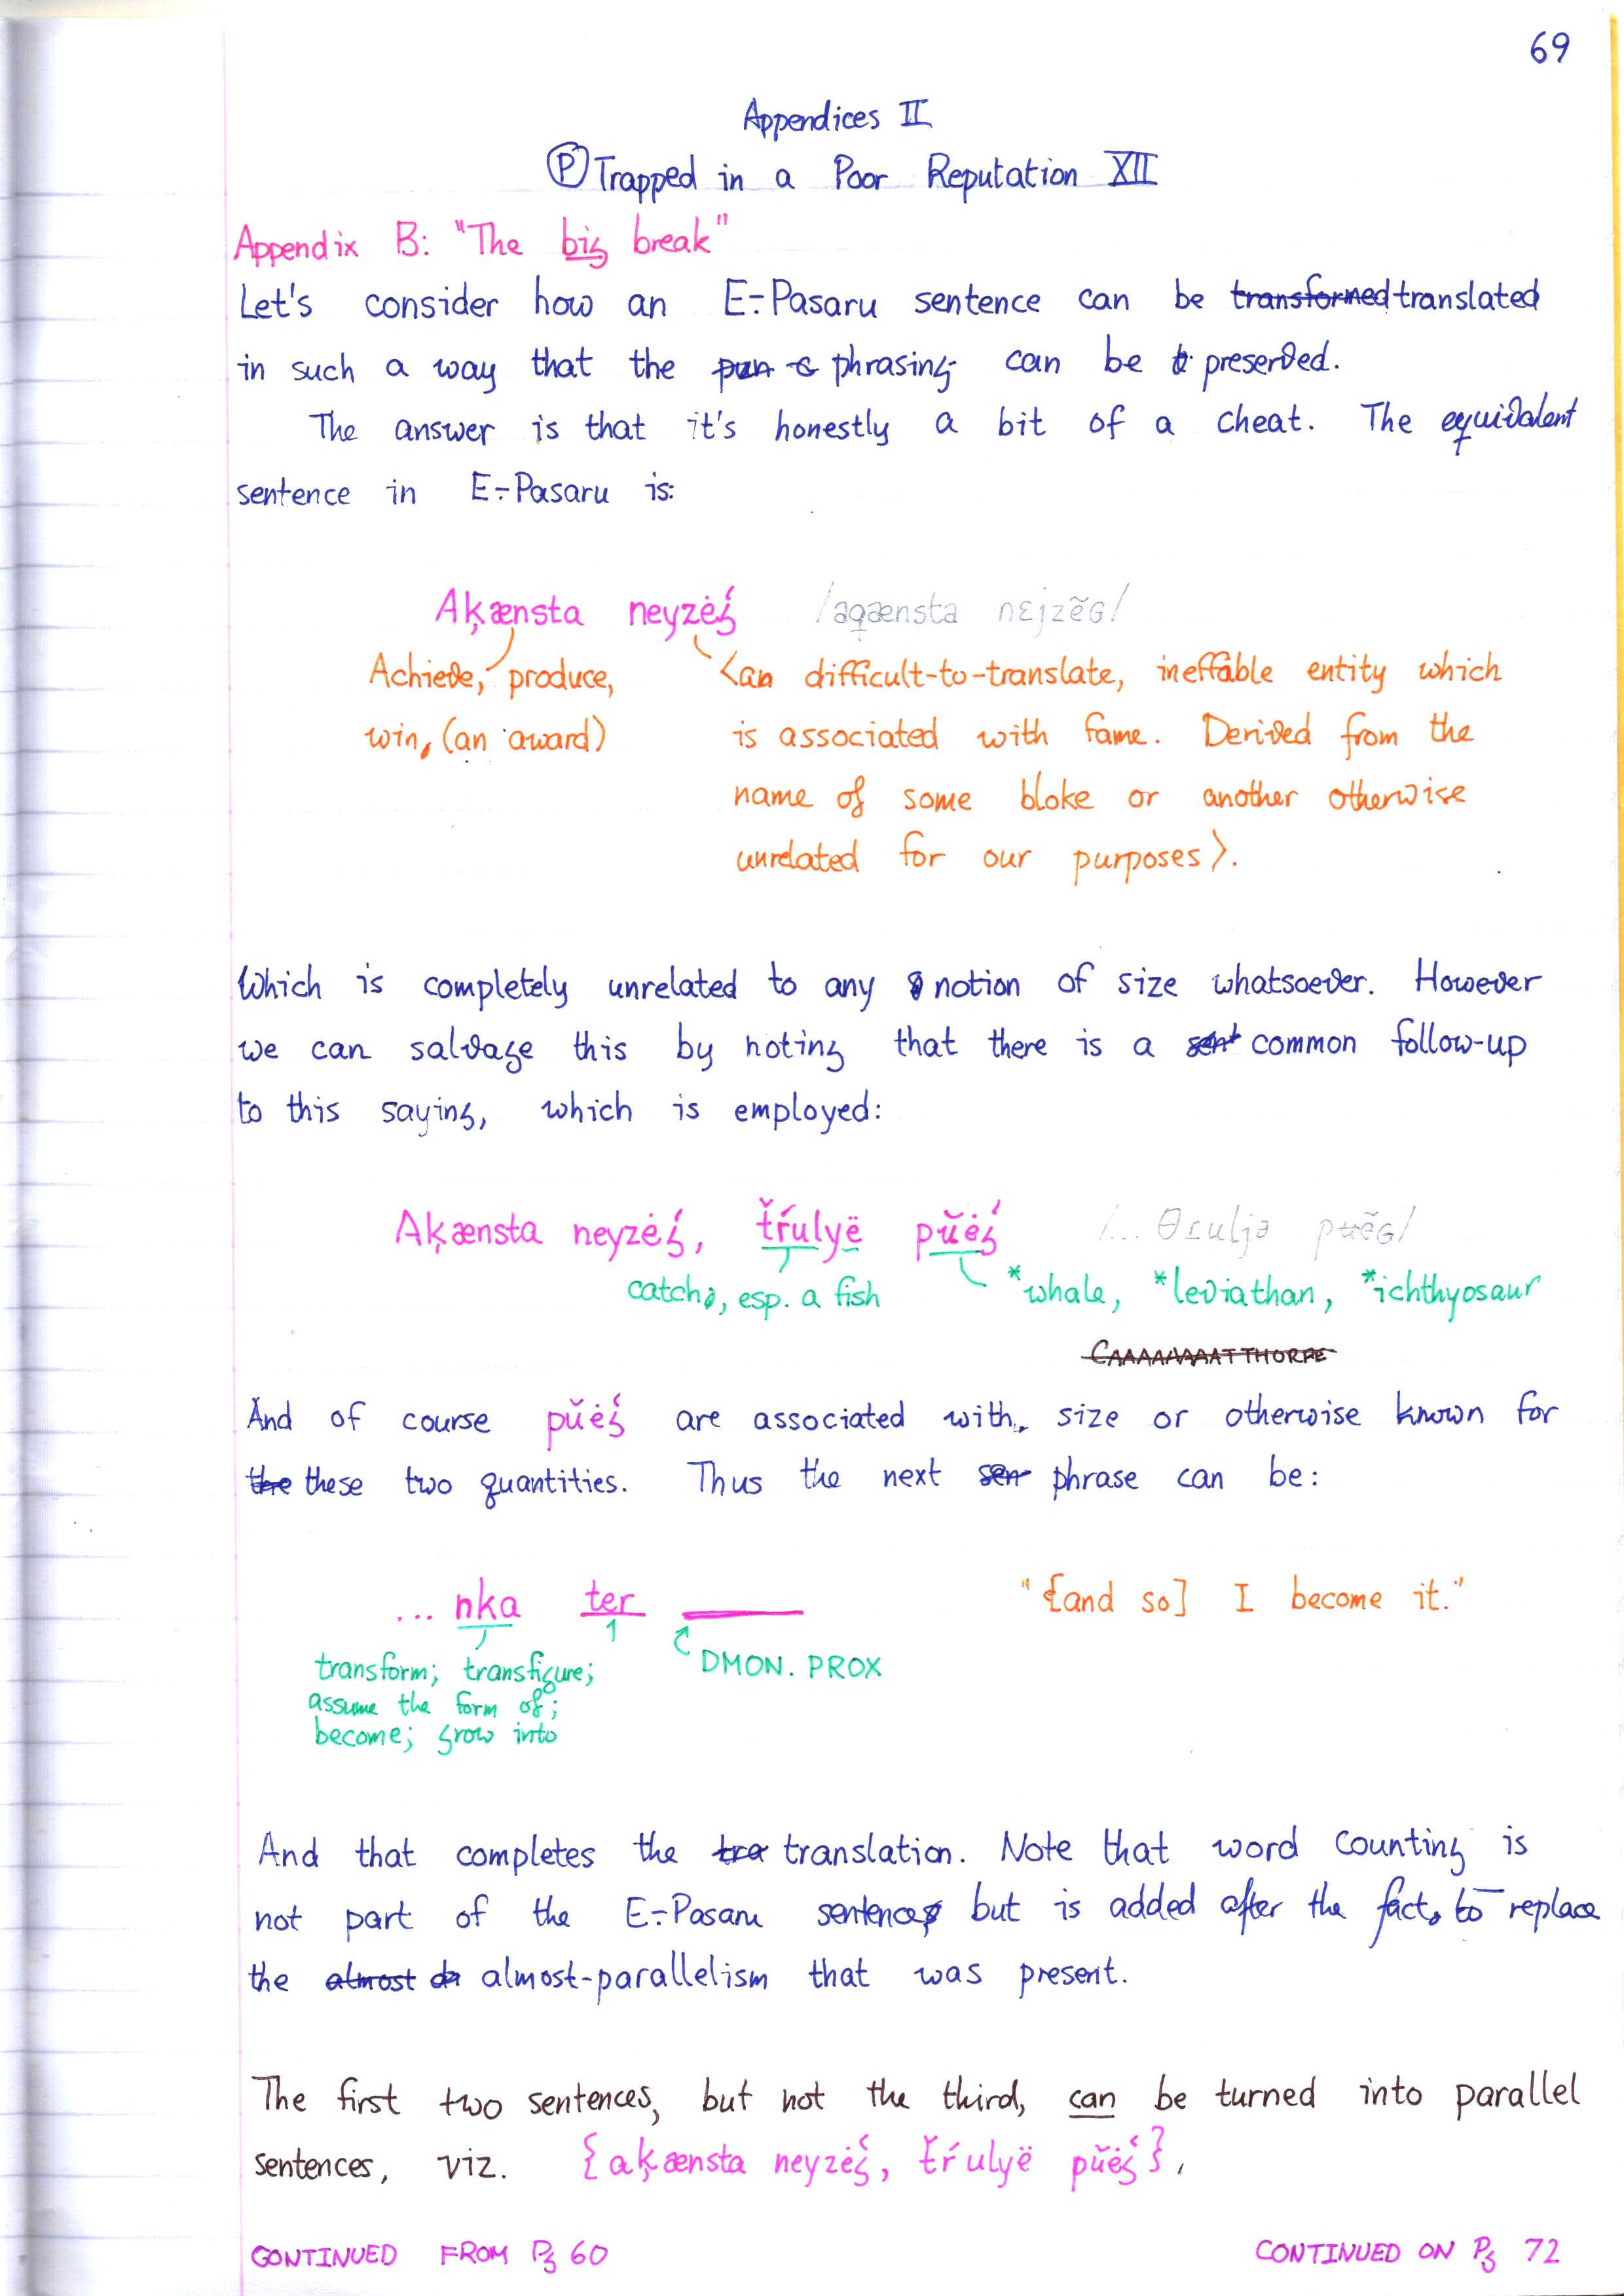 69
Appendices II
Ⓟ Trapped in a Poor Reputation XII
Appendix B: "The big break"
Let's consider how an E÷Pasaru sentence can be transformed translated
in such a way that the pun phrasing can be preserved.
The answer is that it's honestly a bit of a cheat. The equivalent
sentence in E÷Pasaru is:
Aķænsta neyzėǵ /aqænsta nɛjzẽɢ/
Achieve, produce, <an difficult-to-translate, ineffable entity which
win, (an award) is associated with fame. Derived from the
name of some bloke or another otherwise
unrelated for our purposes>.
Which is completely unrelated to any notion of size whatsoever. However
we can salvage this by noting that there is a sent common follow-up
to this saying, which is employed:
Aķænsta neyzėǵ, ťŕulyë pŭėǵ /... θɾuljə pʉẽɢ/
catch, esp. a fish *whale, *leviathan, *ichthyosaur
CAAAAAAAATTHORPE
And of course pŭėǵ are associated with, size or otherwise known for
the these two quantities. Thus the next sen phrase can be:
... nka ter ____ "[and so] I become it."
transform; transfigure; 1 DMON. PROX
assume the form of;
become; grow into
And that completes the tra translation. Note that word counting is
not part of the E÷Pasaru sentence but is added after the fact, to replace
the almost da almost-parallelism that was present.
The first two sentences, but not the third, can be turned into parallel
sentences, viz. {aķænsta neyzėǵ, ťŕulyë pŭėǵ}.
CONTINUED FROM Pg 60 CONTINUED ON Pg 72